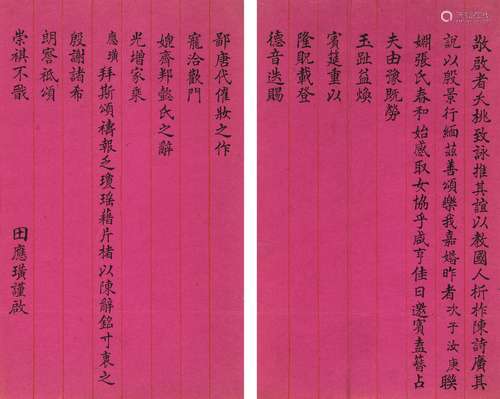 敬啟者夭桃致詠推其誼以教國人析柞陳詩廣其
說以殷景行緬茲善頌樂我嘉婚昨者次子汝庚聯
姻張氏春和始感取女協乎咸亨佳日邀賓盍簪占
夫由豫既勞
玉趾益煥
賓筵重以
隆貺載登
德音迭賜
鄙唐代催妝之作
寵洽歡門
媲齊邦懿氏之辭
光增家乘
應璜拜斯頌禱報乏瓊瑤藉片楮以陳辭銘寸衷之
殷謝諸希
朗詧祗頌
崇祺不戬
田應璜謹啟